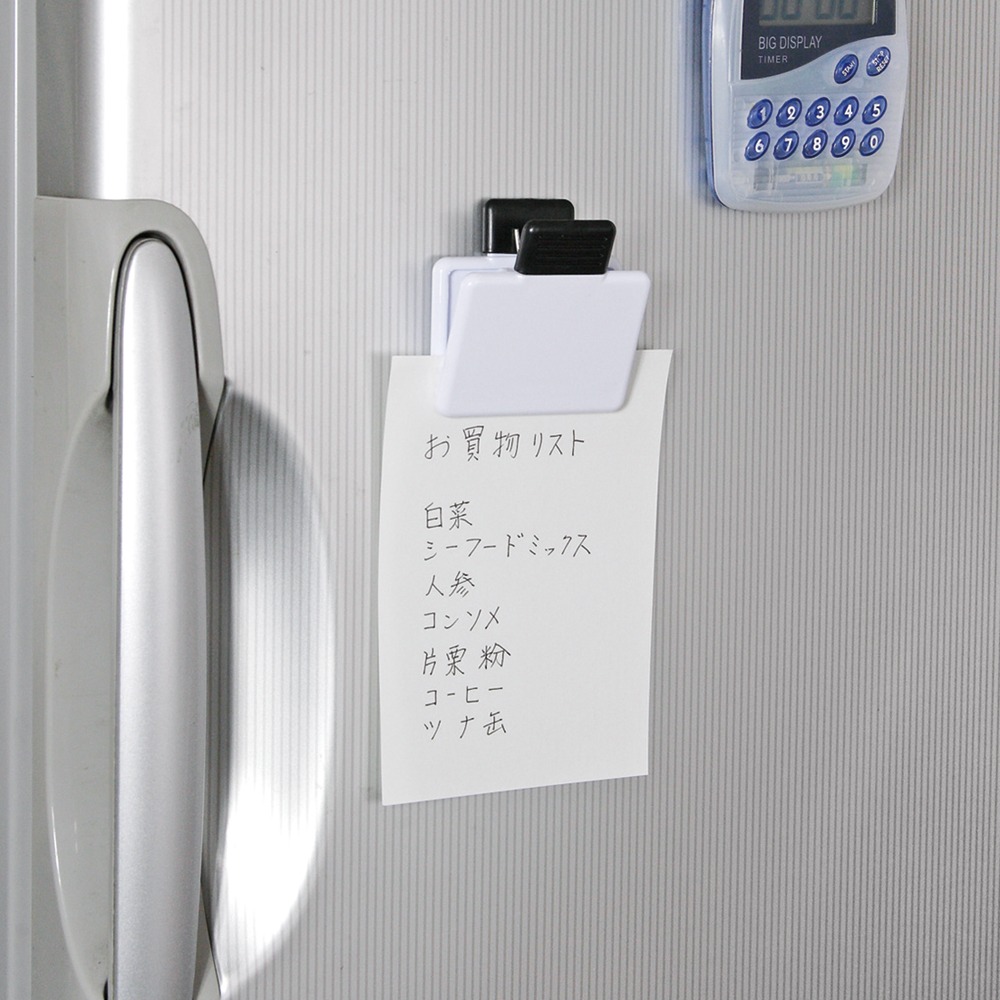 00 00
BIG DISPLAY
TIMER
START
STOP
RESET
1 2 3 4 5
6 7 8 9 0
お買物リスト
白菜
シーフードミックス
人参
コンソメ
片栗粉
コーヒー
ツナ缶